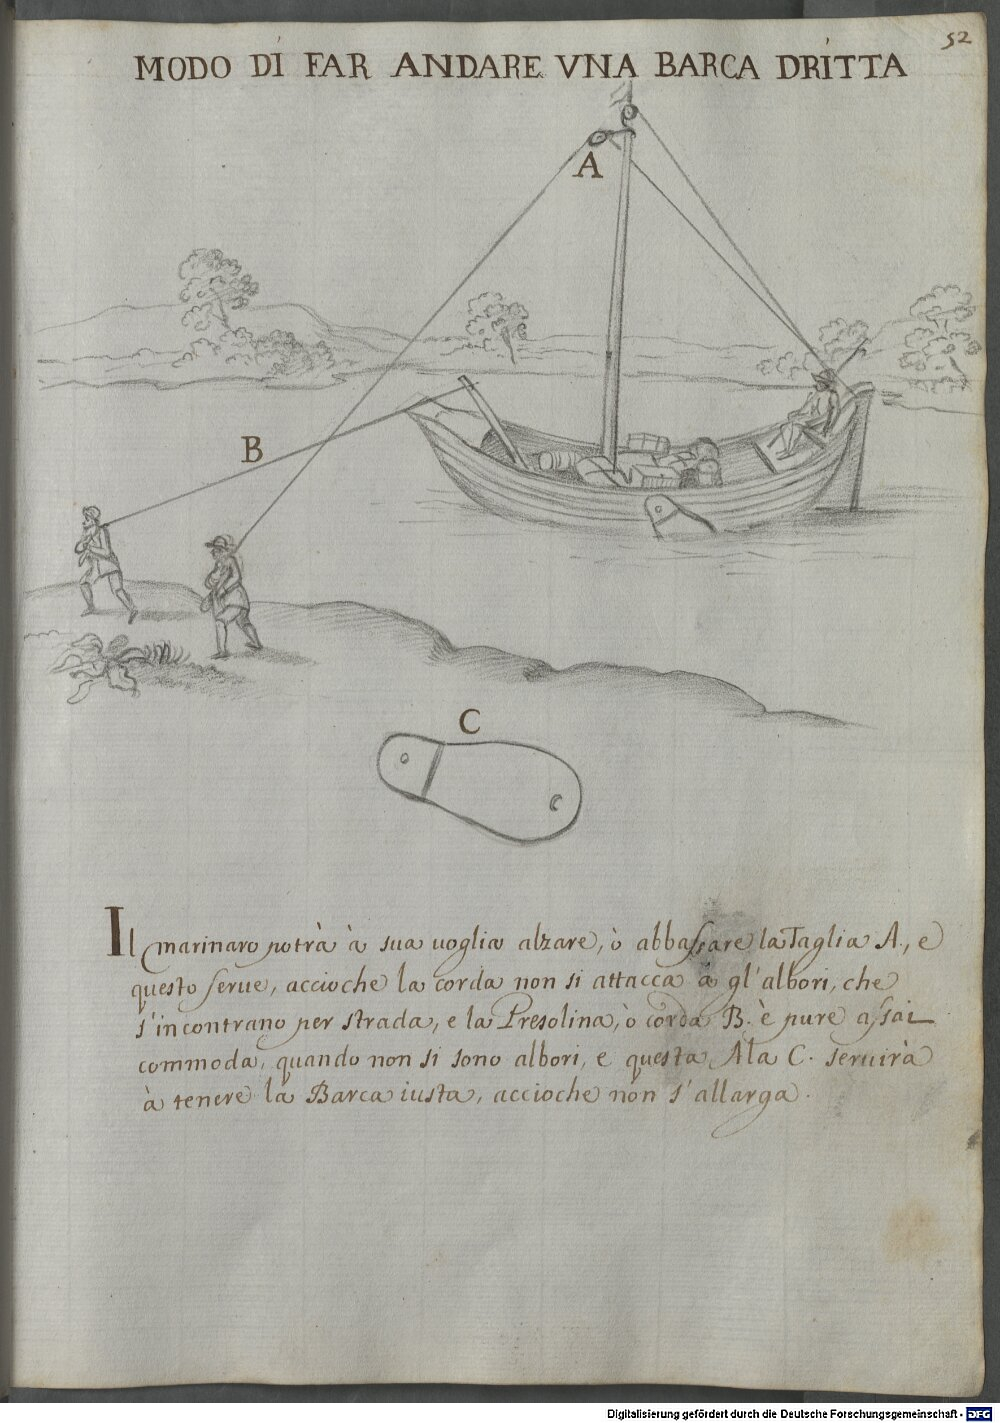 52
MODO DI FAR ANDARE VNA BARCA DRITTA
A
B
C
Il marinaro potrà à sua uoglia alzare, ò abbassare la Taglia A., e
questo serue, accioche la corda non si attacca à gl'albori, che
s'incontrano per strada, e la Presolina, ò corda B. è pure assai
commoda, quando non si sono albori, e questa Ala C. seruirà
à tenere la Barca iusta, accioche non s'allarga.
Digitalisierung gefördert durch die Deutsche Forschungsgemeinschaft - DFG